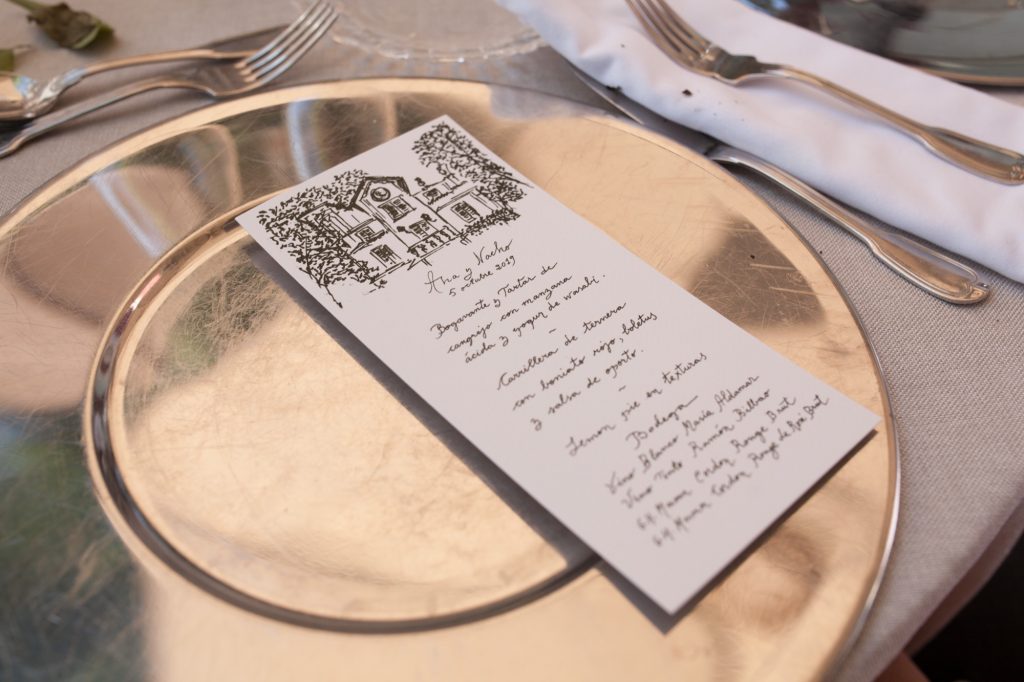 Ana y Nacho
5 octubre 2019
Bogavante y Tartár de
cangrejo con manzana
ácida y yogur de wasabi.
–
Carrillera de ternera
con boniato rojo, boletus
y salsa de oporto.
–
Lemon pie en texturas
Bodega
Vino Blanco María Aldamar
Vino Tinto Ramón Bilbao
GH. Mumm Cordon Rouge Brut
GH Mumm Cordon Rouge de Rosé Brut